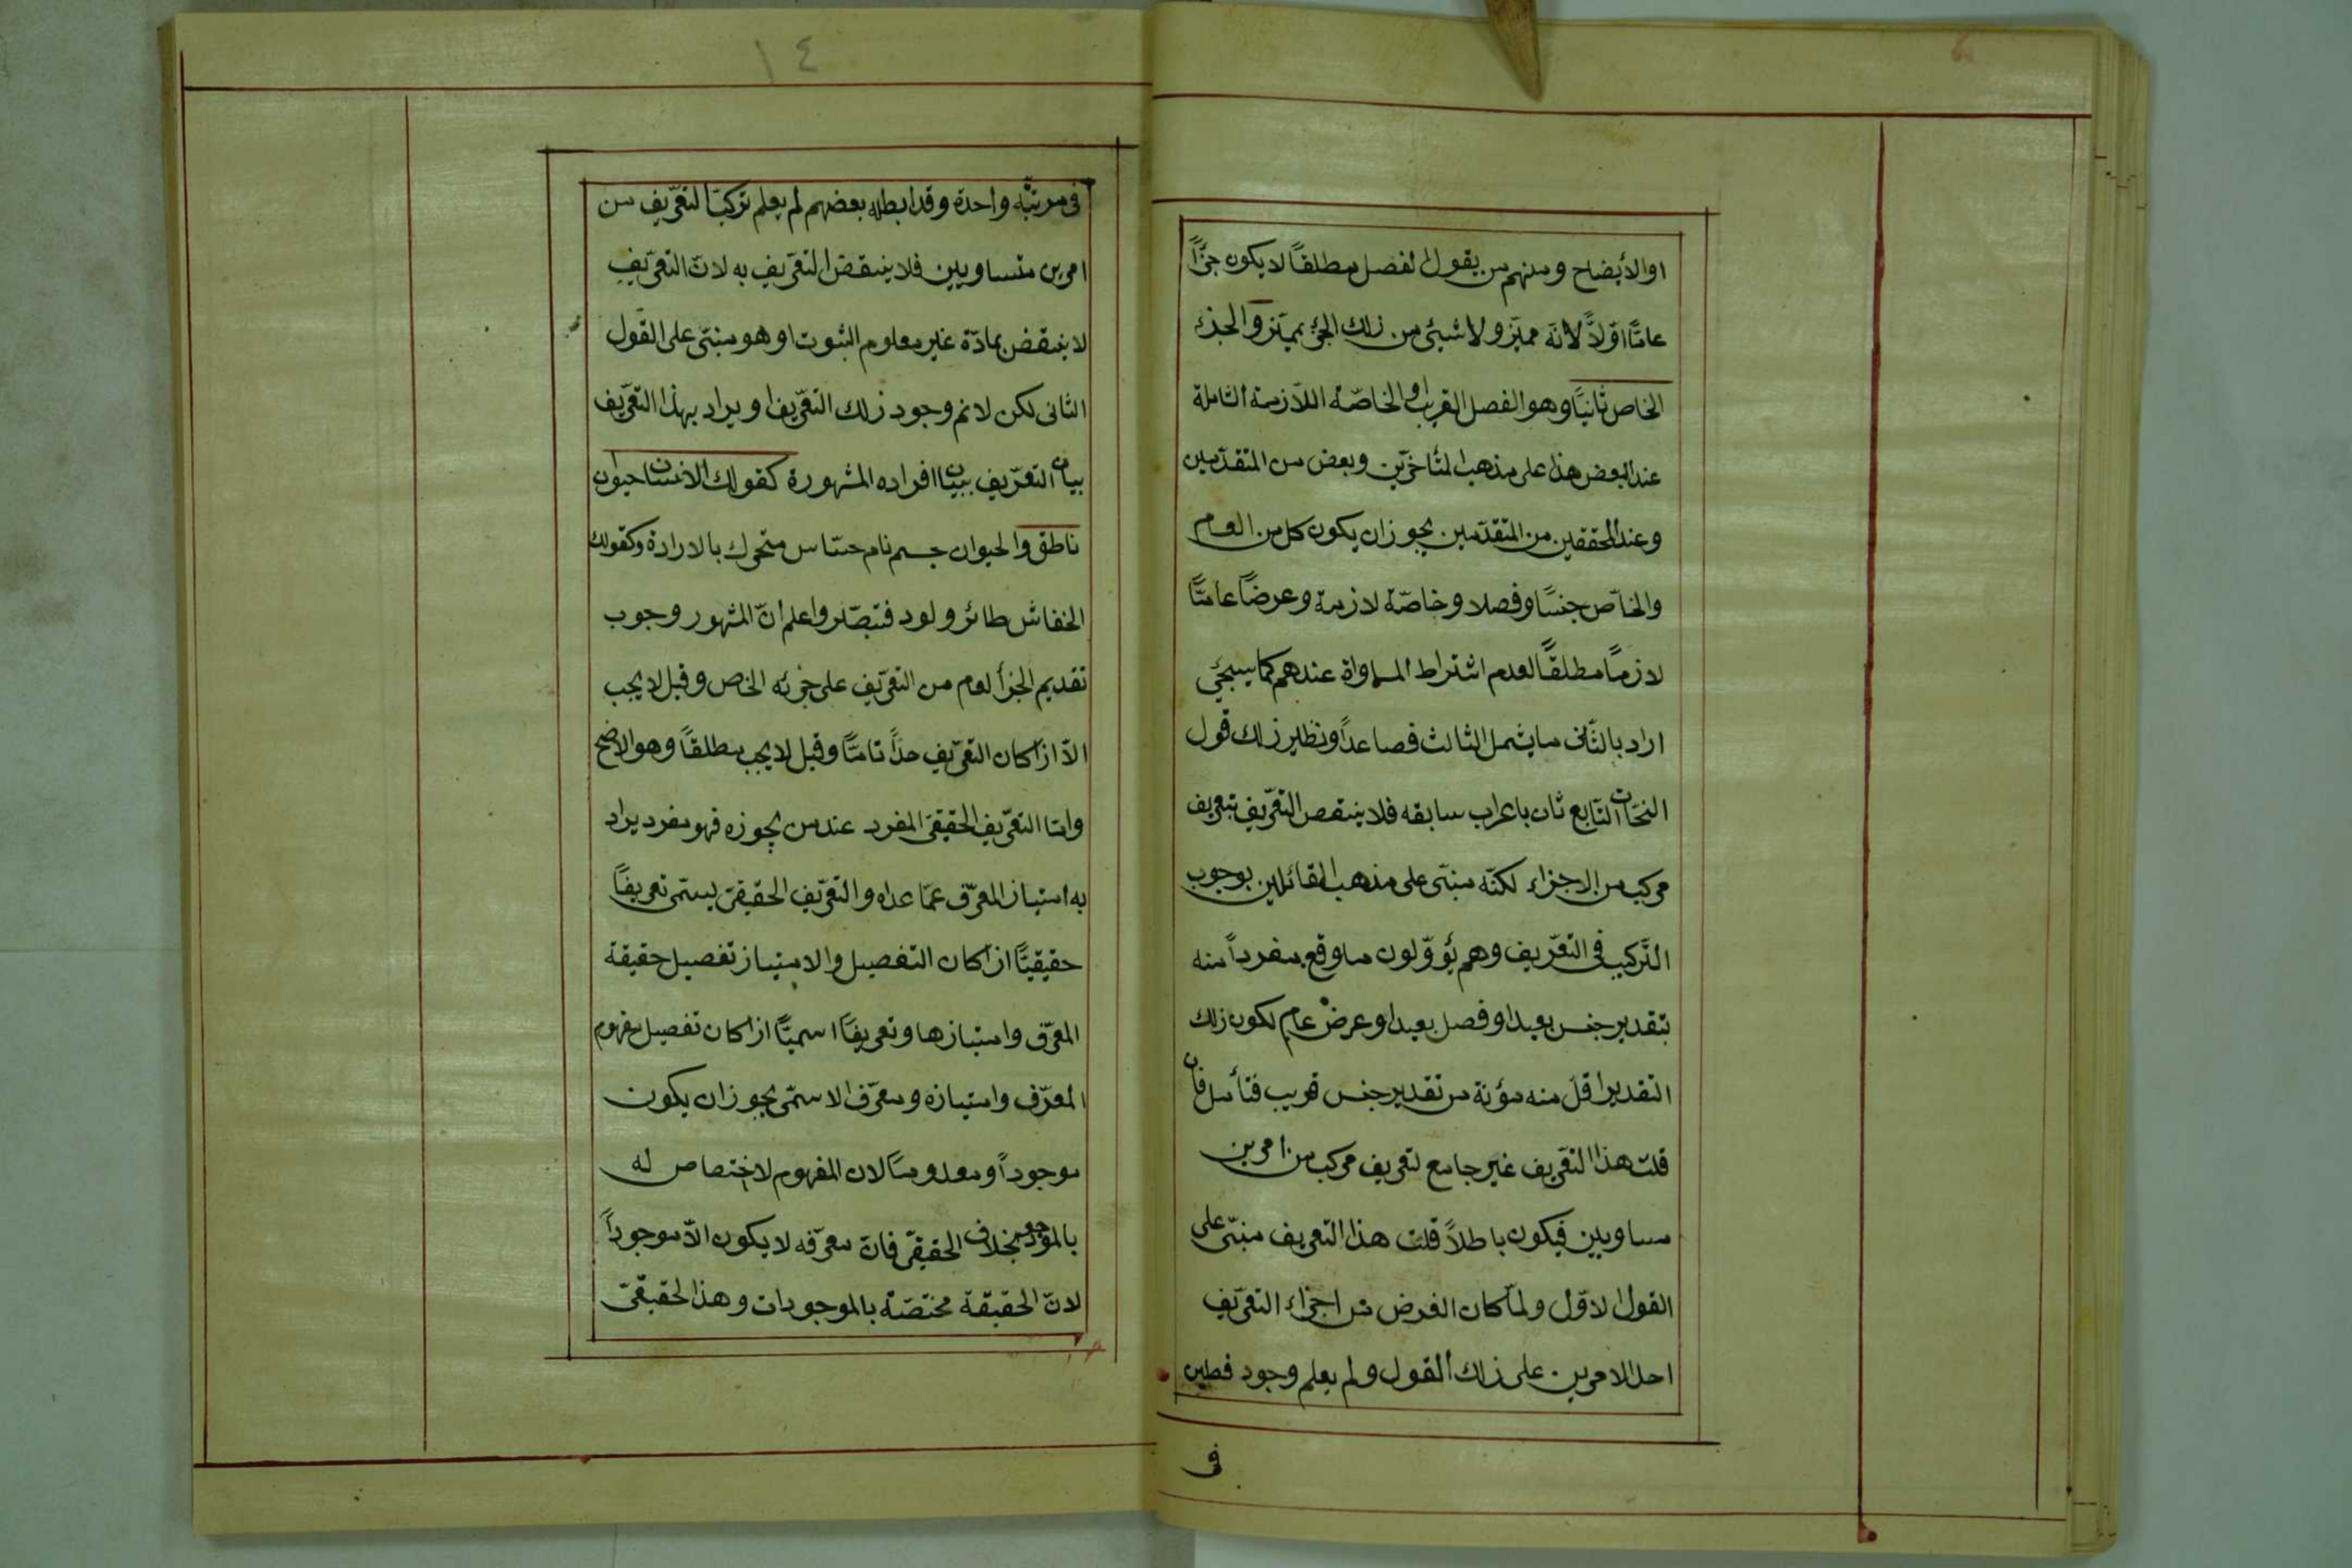 او الأيضاح ومنهم من يقول الفصل مطلقاً لا يكون جزأً
عامًّا اوّلاً لانّه مميّز ولا شيئ من ذلك الجزء بمميّز والجزء
الخاص ثانيًا وهو الفصل القريب او الخاصّة اللّازمة الشاملة
عند البعض هذا على مذهب المتأخّرين وبعض من المتقدّمين
وعند المحققين من المتقدّمين يجوز ان يكون كل من العام
والخاصّ جنسًا وفصلا وخاصّة لازمة وعرضًا عامًّا
لازمًا مطلقًا لعدم اشتراط المساواة عندهم كما سيجئ
اراد بالثّانى ما يشمل الثالث فصاعداً ونظير ذلك قول
النحّات التّابع ثان باعراب سابقه فلا ينتقض التعّريف بتعريف
مركب من الاجزاء لكنّه مبنّى على مذهب القائلين بوجوب
التّركيب فى التعّريف وهم يُؤوّلون ما وقع مفرداً منه
بتقدير جنس بعيد او فصل بعيد او عرض عام لكون ذلك
التقدير اقلّ منه مؤنة من تقدير جنس قريب فتأمل فان
قلت هذا التعّريف غير جامع لتعريف مركب من امرين
مساويين فيكون باطلاً قلت هذا التعريف مبنّى على
القول الاوّل ولمّا كان الغرض من اجزاء التعّريف
احد الامرين على ذلك القول ولم يعلم وجود فصلين
فى
١٤
فى مرتبة واحدة وقد ابطله بعضهم لم يعلم تركيب التعّريف من
امرين متساويين فلا ينتقض التعّريف به لانّ التعّريف
لا ينتقض بمادّة غير معلوم الثبوت او هو مبنّى على القول
الثانى لكن لا نم وجود ذلك التعّريف او يراد بهذا التعّريف
بيان التعّريف ببيان افراده المشهورة كقولك الانسان حيوان
ناطق والحيوان جسم نام حسّاس متحرك بالارادة وكقولك
الخفاش طائر ولود فتبصّر واعلم انّ المشهور وجوب
تقديم الجزء العام من التعّريف على جزئه الخاص وقيل لا يجب
الاّ اذا كان التعّريف حدًّا تامًّا وقيل لا يجب مطلقًا وهو الاصح
وامّا التعّريف الحقيقىّ المفرد عند من يجوزه فهو مفرد يراد
به امتياز المعرّف عمّا عداه والتعّريف الحقيقىّ يسمّى تعريفاً
حقيقيًّا اذا كان التفصيل والامتياز تفصيل حقيقة
المعرّف وامتيازها وتعريفًا اسميًّا اذا كان تفصيل مفهوم
المعرّف وامتيازه ومعرّف الاسمّى يجوز ان يكون
موجوداً ومعدومًا لان المفهوم لا اختصاص له
بالموجود بخلاف الحقيقّى فانّ معرّفه لا يكون الاّ موجوداً
لانّ الحقيقة مختصّة بالموجودات وهذا الحقيقّى